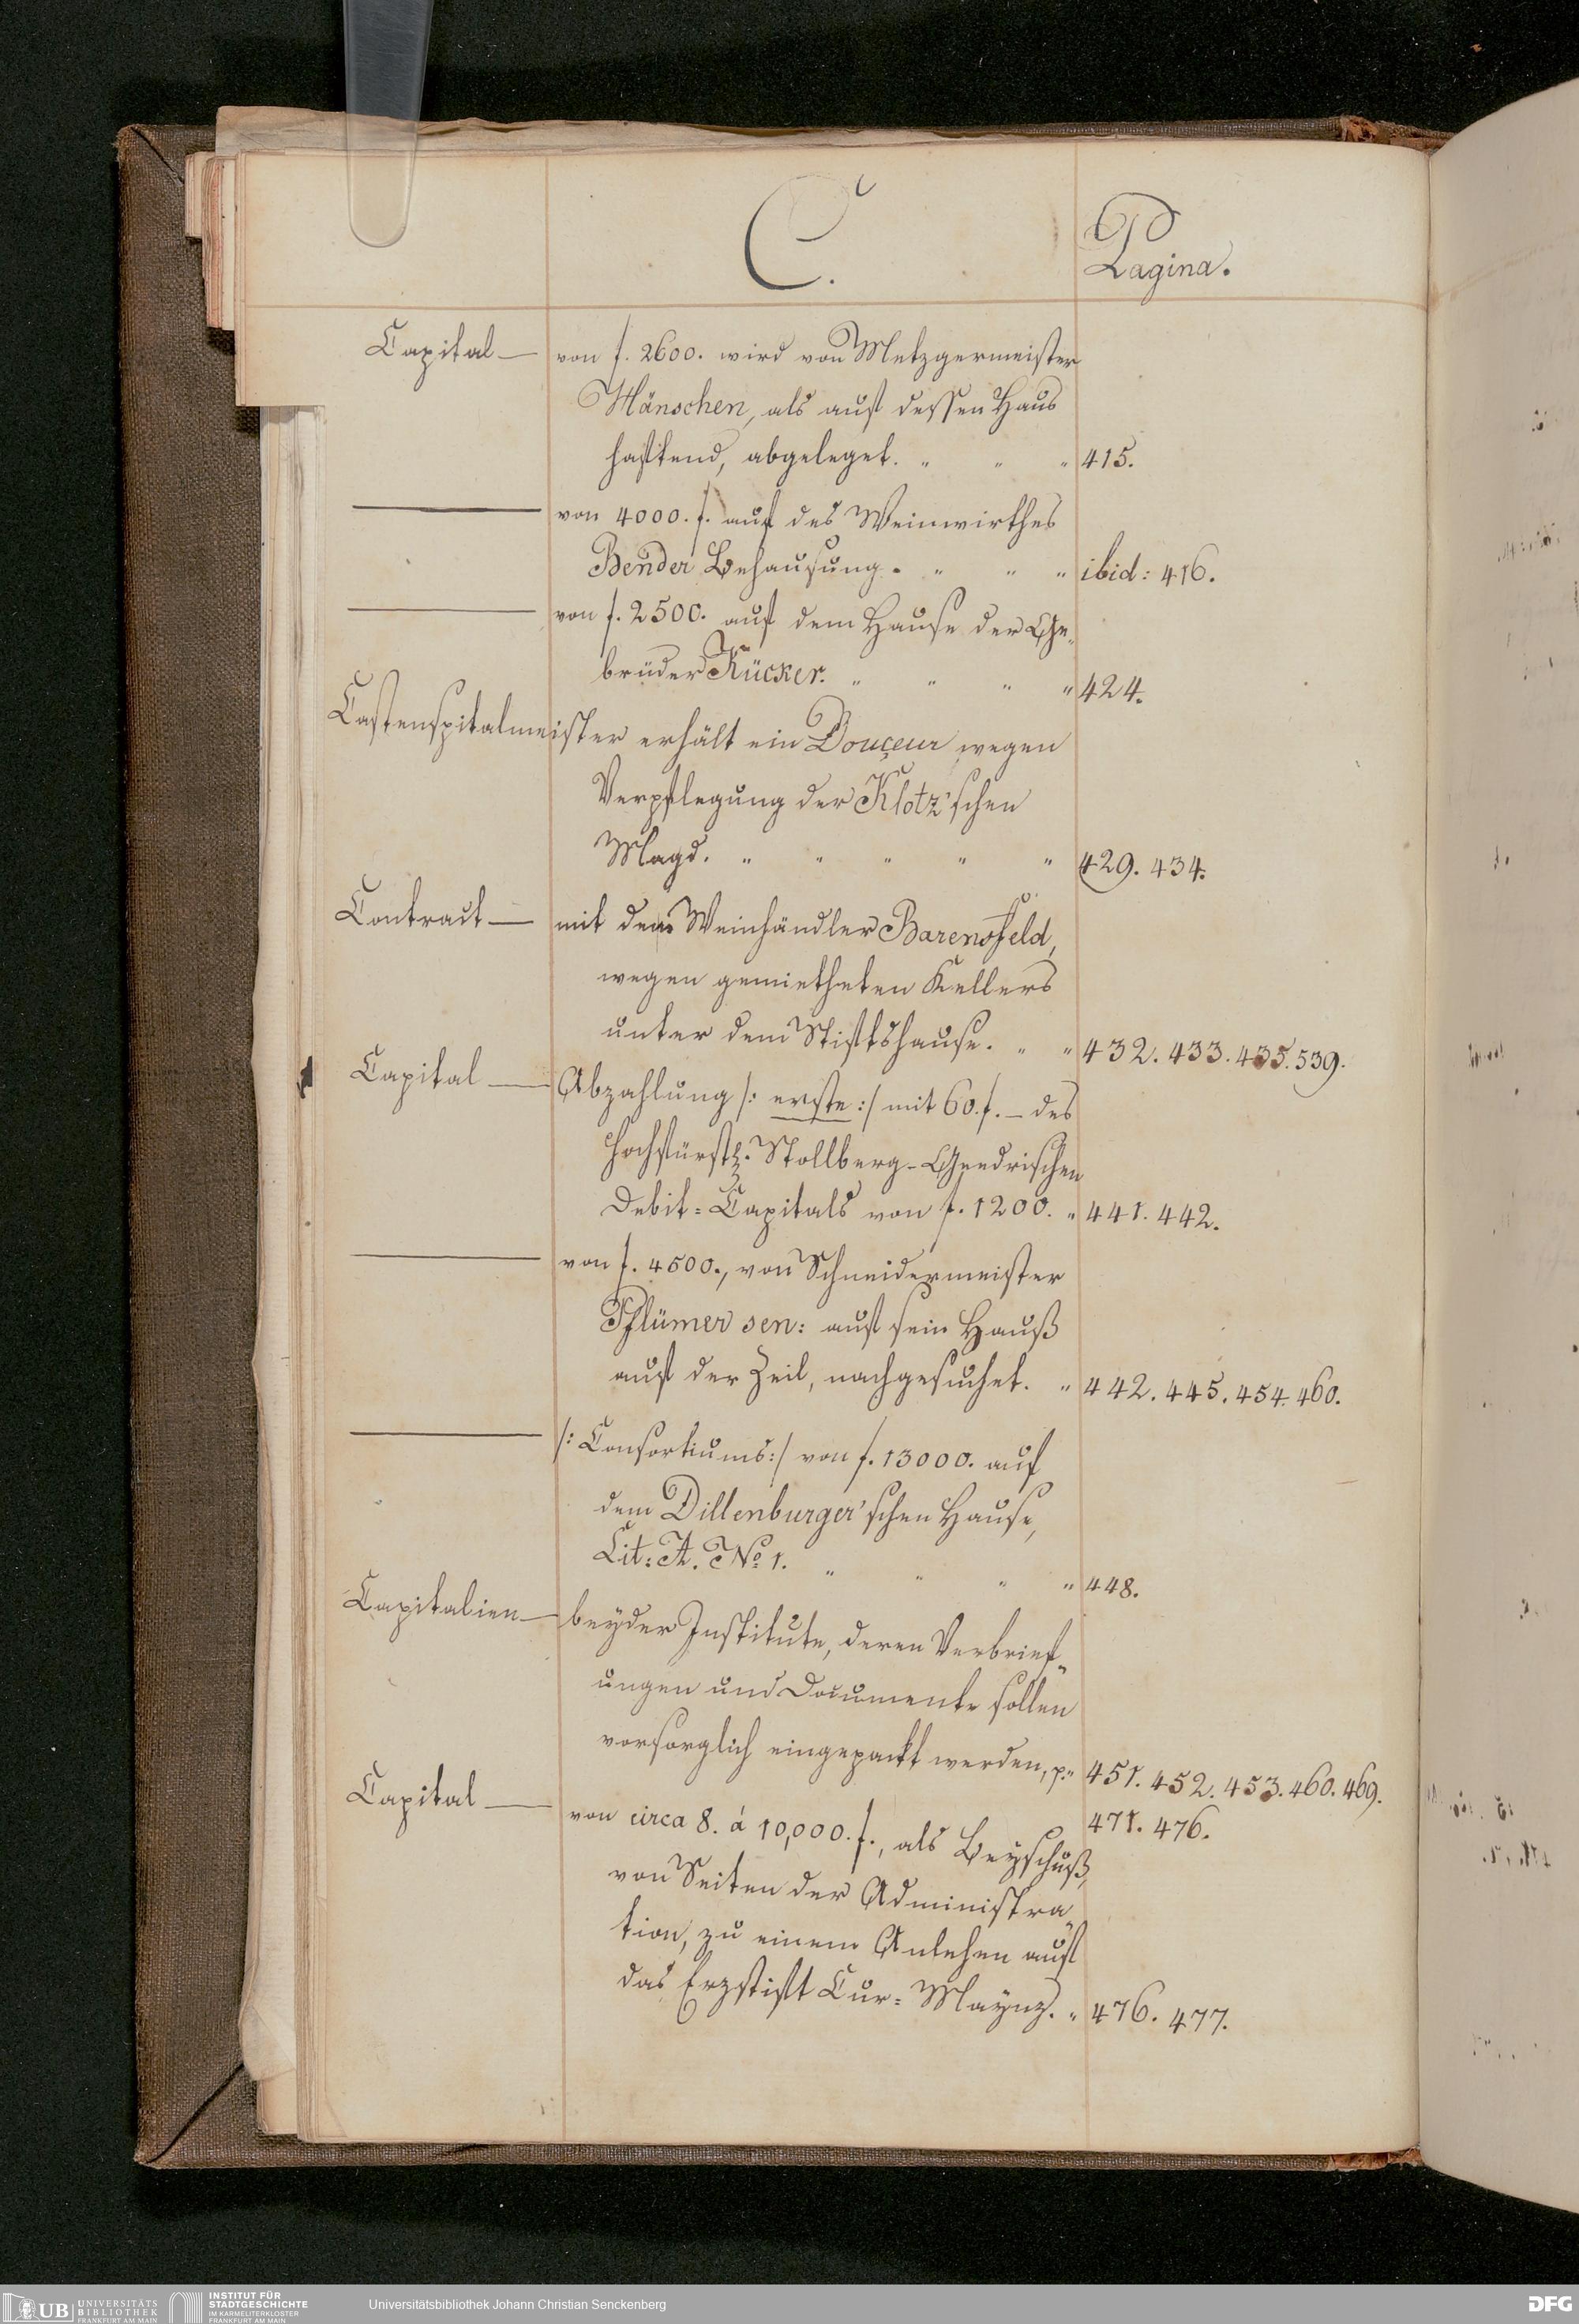 C.
Pagina.
Capital — von f. 2600. wird von Metzgermeister
Mänschen, als auf dessen Haus
haftend, abgeleget. " " " 415.
— von 4000. f. auf des Weinwirthes
Bender Behausung. " " " ibid: 416.
— von f. 2500. auf dem Hause der Ge„
brüder Rücker. " " " " 424.
Castenspitalmeister erhält ein Douçeur wegen
Verpflegung der Klotz'schen
Magd. " " " " " 429. 434.
Contract — mit dem Weinhändler Barensfeld,
wegen gemietheten Kellers
unter dem Stiftshause. " " 432. 433. 435. 539.
Capital — Abzahlung /: erste :/ mit 60. f. — des
Hochfürstl. Stollberg-Geudrischen
Debit-Capitals von f. 1200. " 441. 442.
— von f. 4500., von Schneidermeister
Pflümer sen: auf sein Hauß
auf der Zeil, nachgesuchet. " 442. 445. 454. 460.
— /: Consortiums :/ von f. 13000. auf
dem Dillenburger'schen Hause,
Lit: A. No. 1. " " " " 448.
Capitalien — beyder Institute, deren Verbrief„
ungen und Documente sollen
vorsorglich eingepackt werden, p." 451. 452. 453. 460. 469.
471. 476.
Capital — von circa 8. á 10,000. f., als Beyschuß,
von Seiten der Administra„
tion, zu einem Anlehen auf
das Erzstift Cur-Maynz. " 476. 477.
UB UNIVERSITÄTS
BIBLIOTHEK
FRANKFURT AM MAIN
INSTITUT FÜR
STADTGESCHICHTE
IM KARMELITERKLOSTER
FRANKFURT AM MAIN
Universitätsbibliothek Johann Christian Senckenberg
DFG